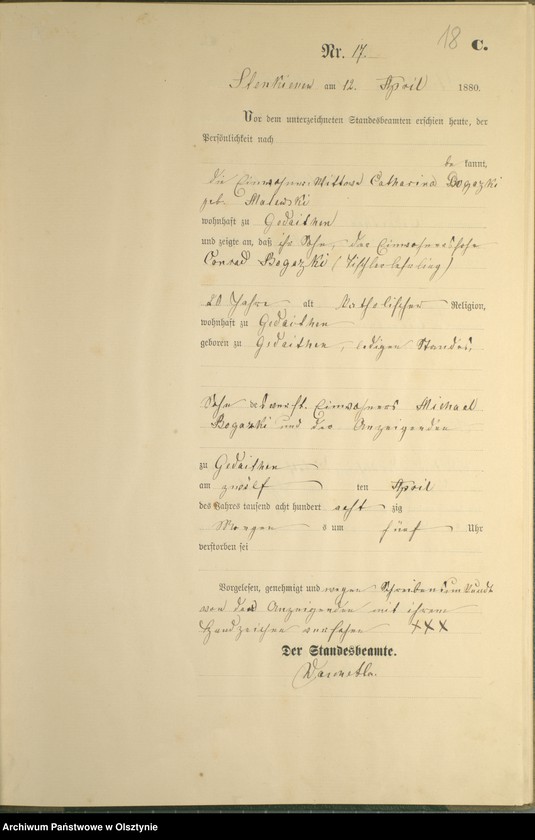 18 C.
Nr. 17.
Stenkienen am 12. April 1880.
Vor dem unterzeichneten Standesbeamten erschien heute, der
Persönlichkeit nach
be kannt,
die Einwohner-Wittwe Catharina Bogazki
geb. Malewski
wohnhaft zu Gedaithen
und zeigte an, daß ihr Sohn, der Einwohnersohn
Conrad Bogazki (Tischlerlehrling)
20 Jahre alt katholischer Religion,
wohnhaft zu Gedaithen
geboren zu Gedaithen, ledigen Standes,
Sohn des verst. Einwohners Michael
Bogazki und der Anzeigenden
zu Gedaithen
am zwölf ten April
des Jahres tausend acht hundert acht zig
Morgen s um fünf Uhr
verstorben sei
Vorgelesen, genehmigt und wegen Schreibensunkunde
von der Anzeigenden mit ihrem
Handzeichen versehen XXX
Der Standesbeamte.
Archiwum Państwowe w Olsztynie